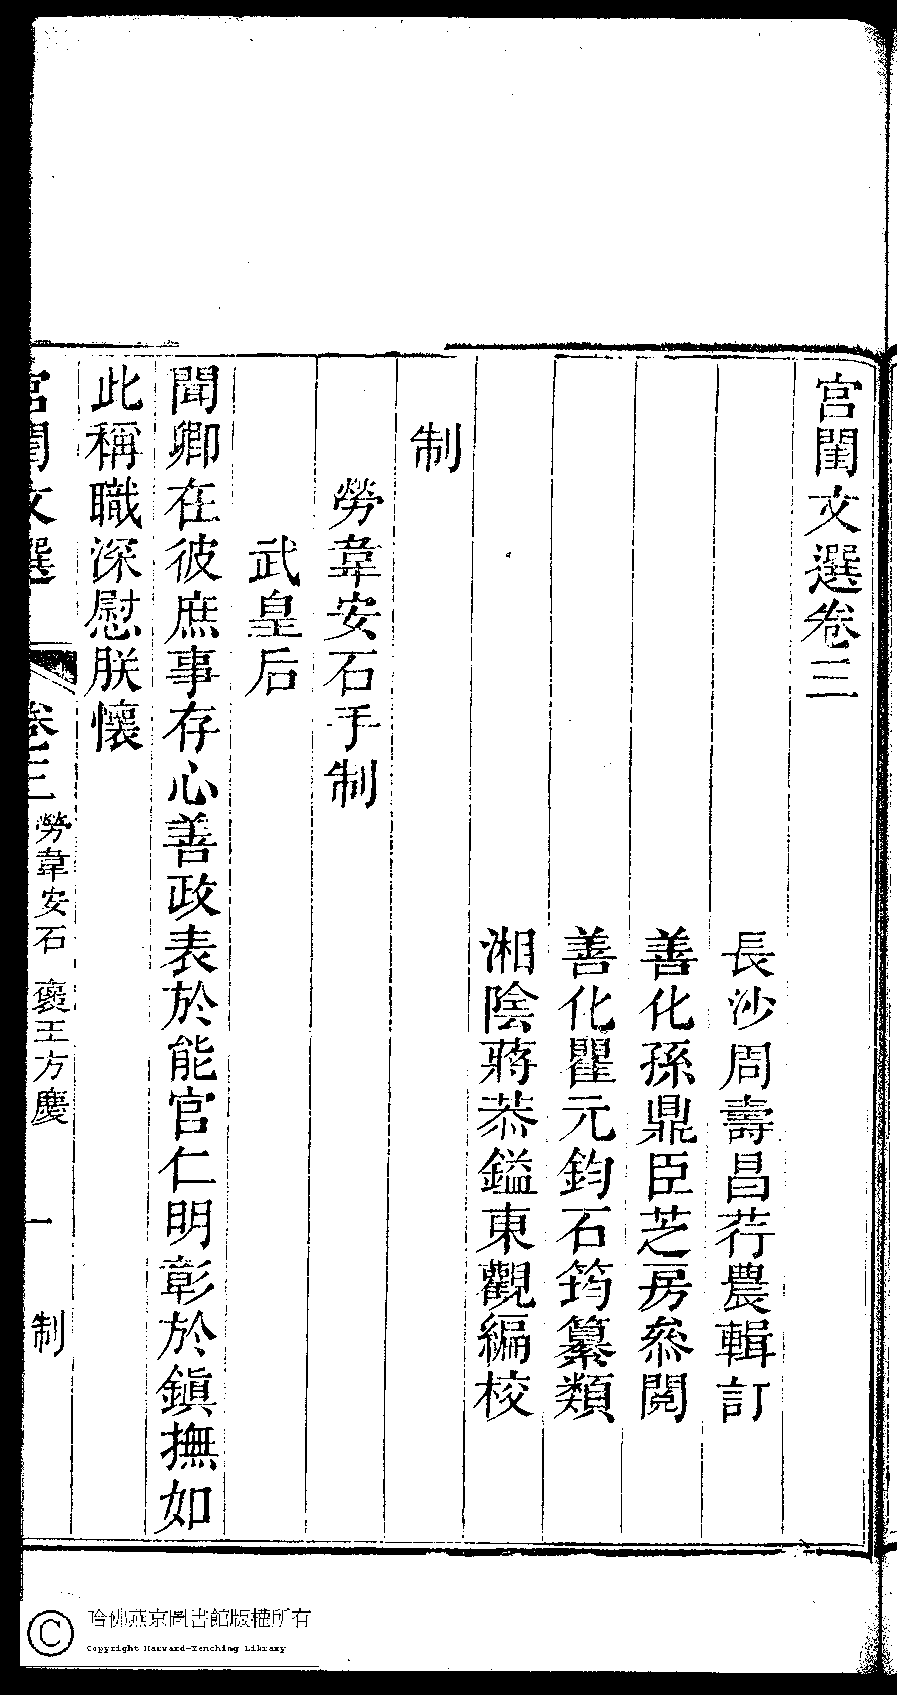 宮閨文選卷三
長沙周壽昌荇農輯訂
善化孫鼎臣芝房叅閱
善化瞿元鈞石筠纂類
湘陰蔣恭鎰東觀編校
制
勞韋安石手制
武皇后
聞卿在彼庶事存心善政表於能官仁明彰於鎭撫如
此稱職深慰朕懷
宮閨文選 卷三 勞韋安石 褒王方慶 一 制
哈佛燕京圖書館版權所有
Copyright Harvard-Yenching Library